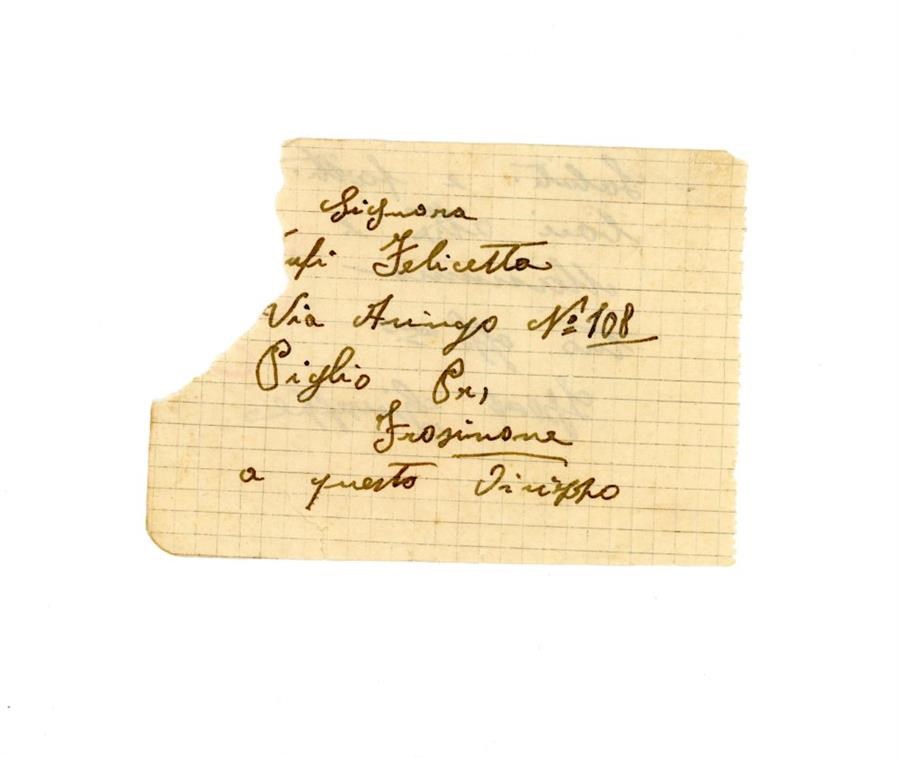 Signora
ufi Felicetta
Via Aringo Nº 108
Piglio Pr,
Frosinone
a questo